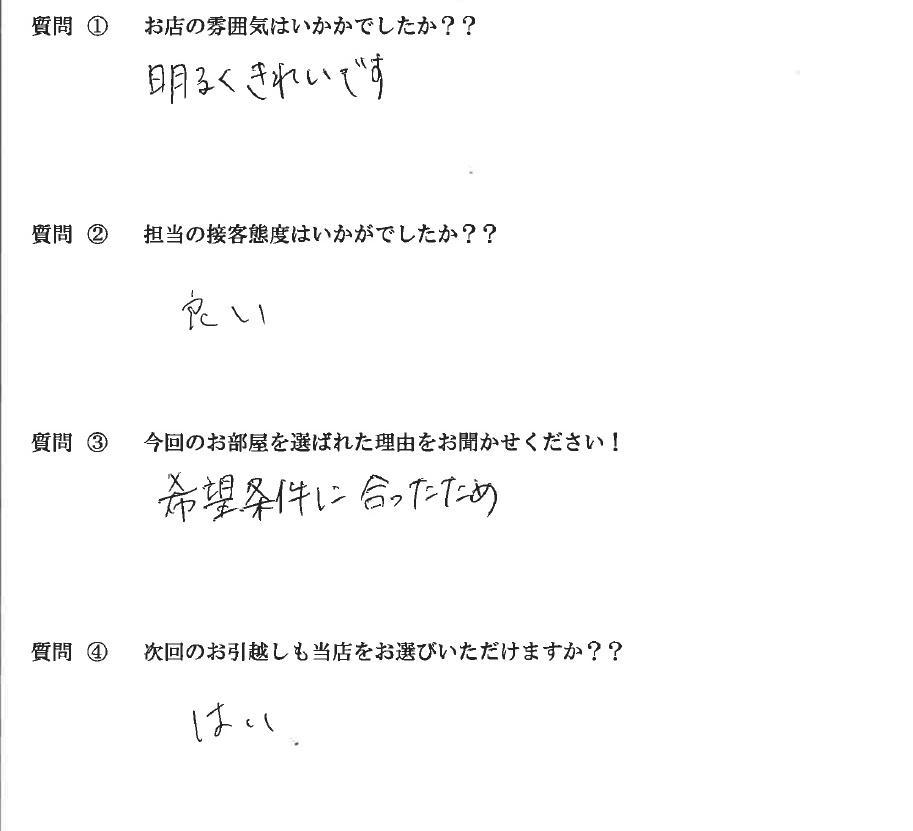 質問 ① お店の雰囲気はいかかでしたか？？
明るくきれいです
質問 ② 担当の接客態度はいかがでしたか？？
良い
質問 ③ 今回のお部屋を選ばれた理由をお聞かせください！
希望条件に合ったため
質問 ④ 次回のお引越しも当店をお選びいただけますか？？
はい